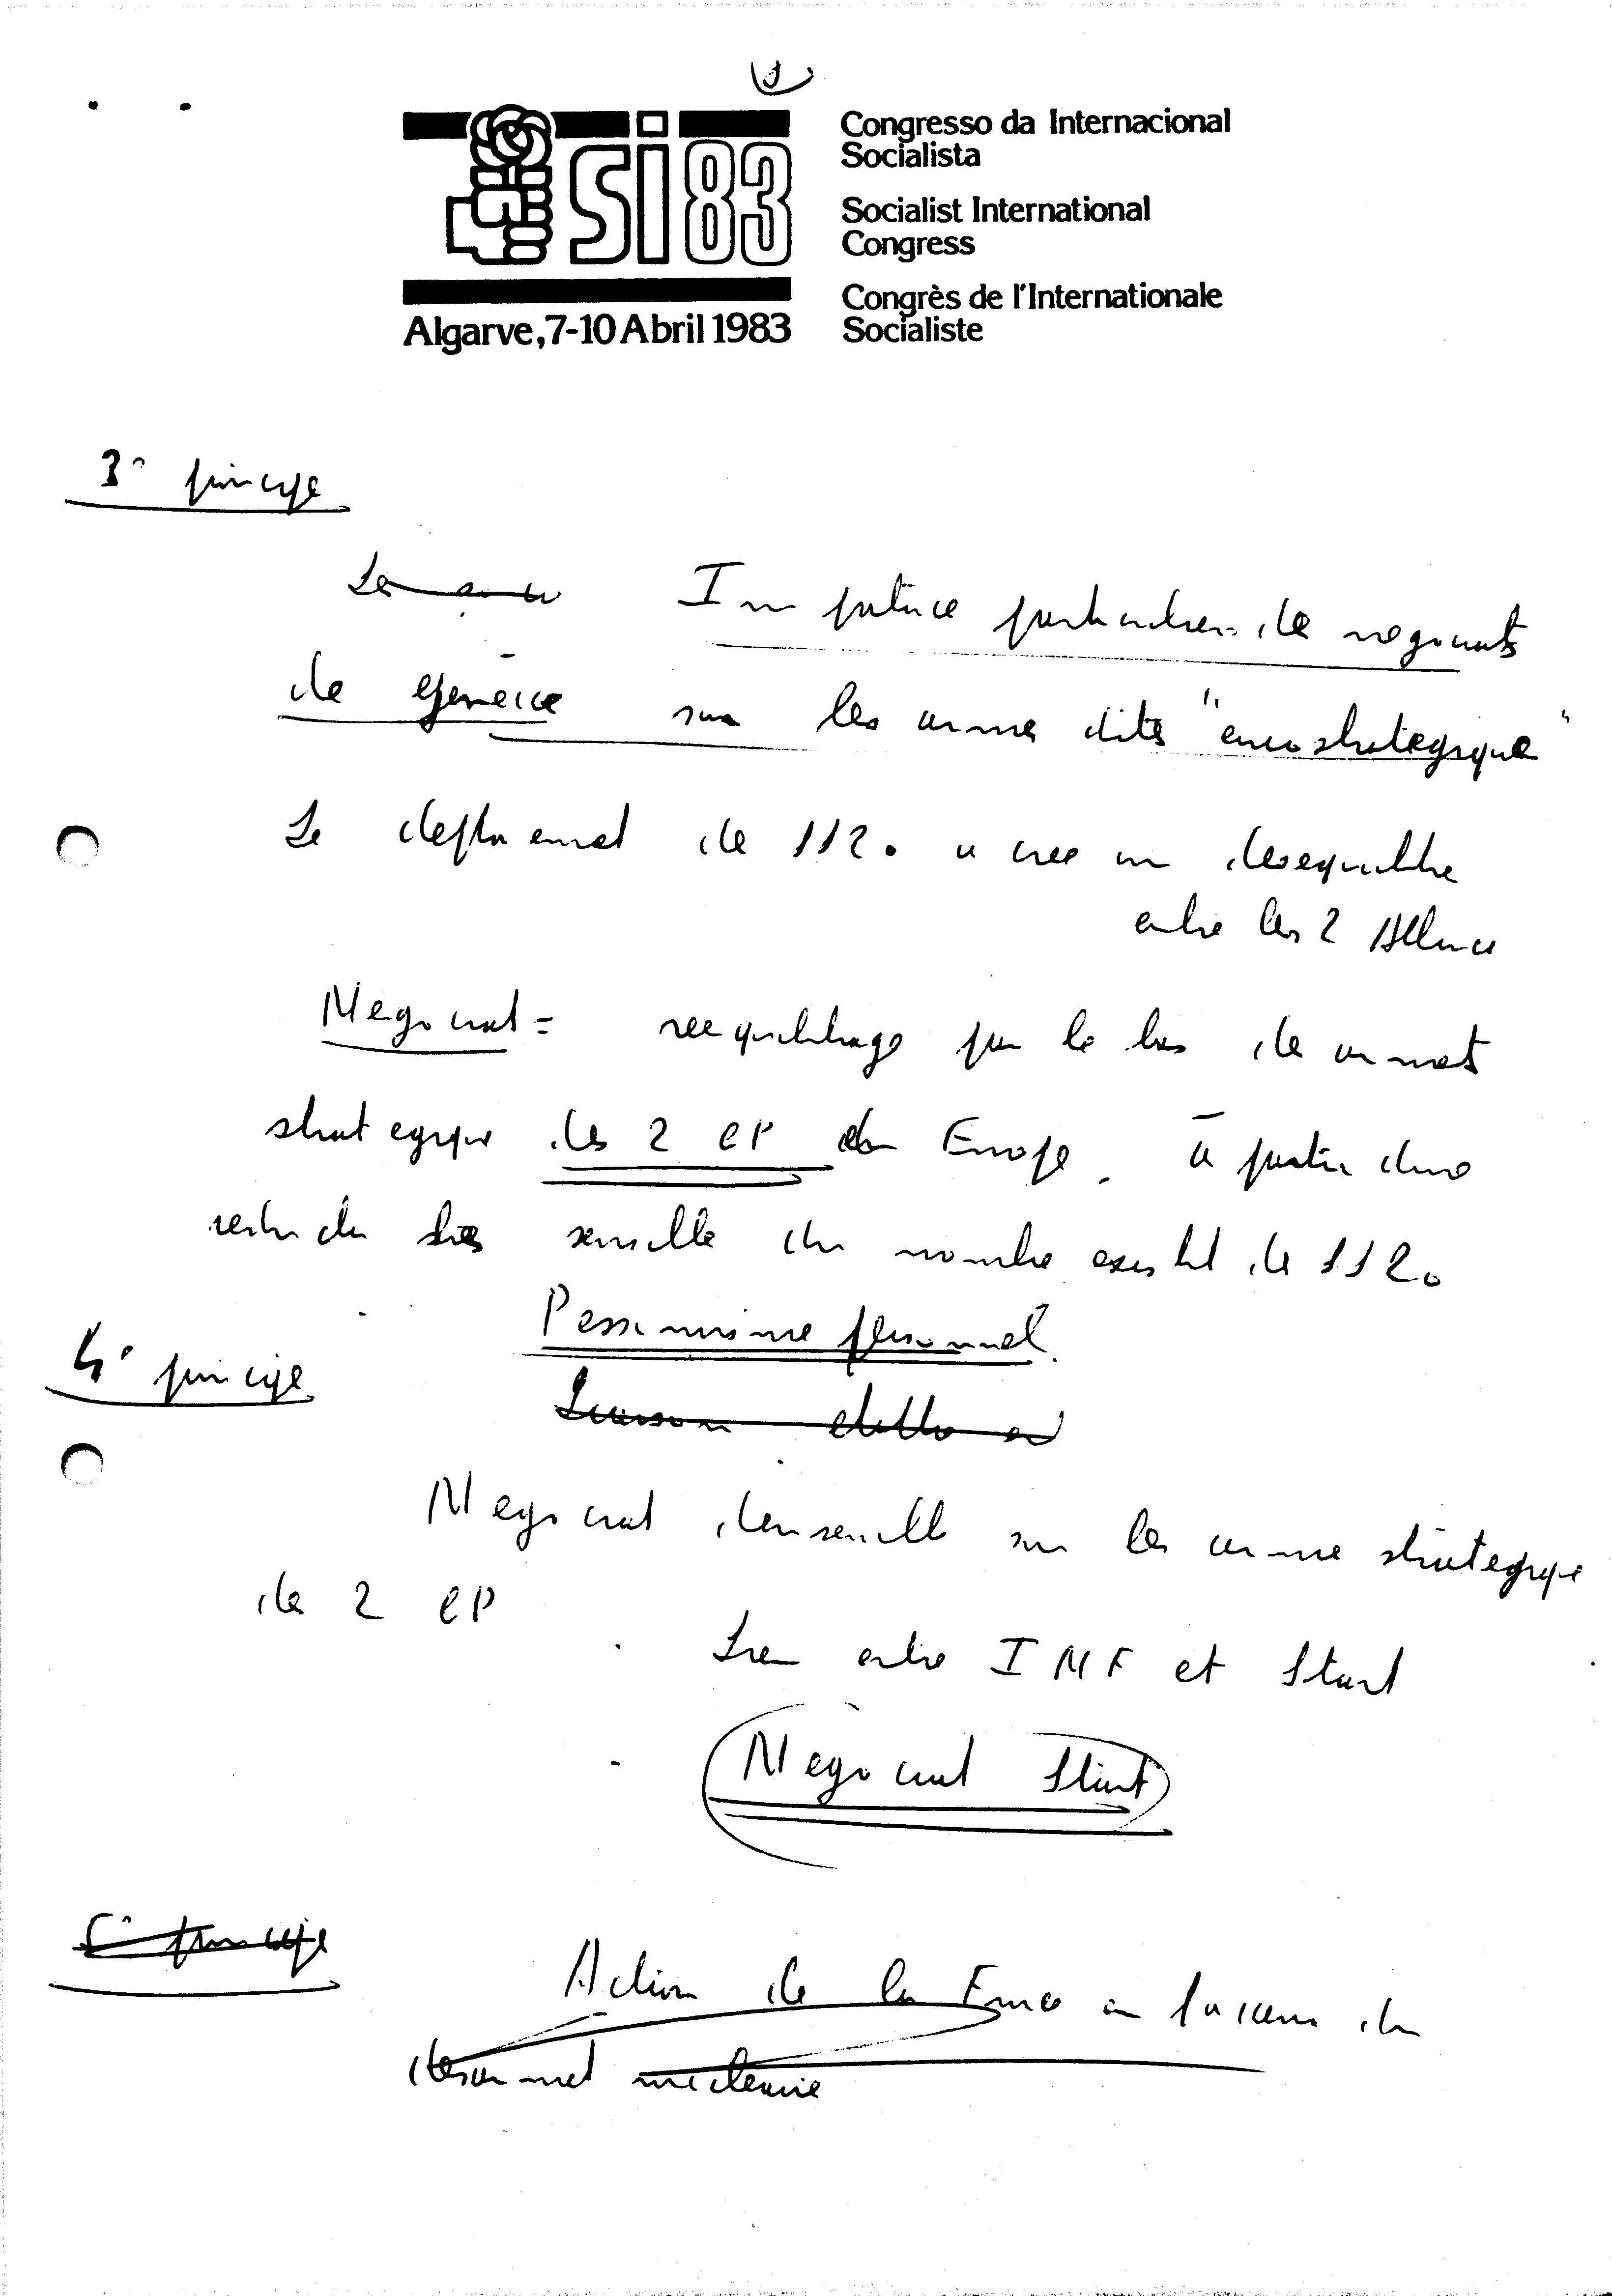 SI 83
Algarve, 7-10 Abril 1983
Congresso da Internacional
Socialista
Socialist International
Congress
Congrès de l'Internationale
Socialiste
3° principe
Le Importance particulière de négociats
de genève sur les armes dites "eurostratégique"
Le déploiement de SS 20 a créé un déséquilibre
entre les 2 Alliance
Négociat = rééquilibrage par le bas de armemet
stratégique des 2 GP en Europe. à partir d'une
réduction très sensible du nombre existat de SS 20
Pessimisme personnel.
4° principe
Négociat d'ensemble sur les arme stratégique
de 2 GP
Lien entre INF et Start
Négociat Start
5° principe
Action de la France en faveur du
désarmemet nucléaire